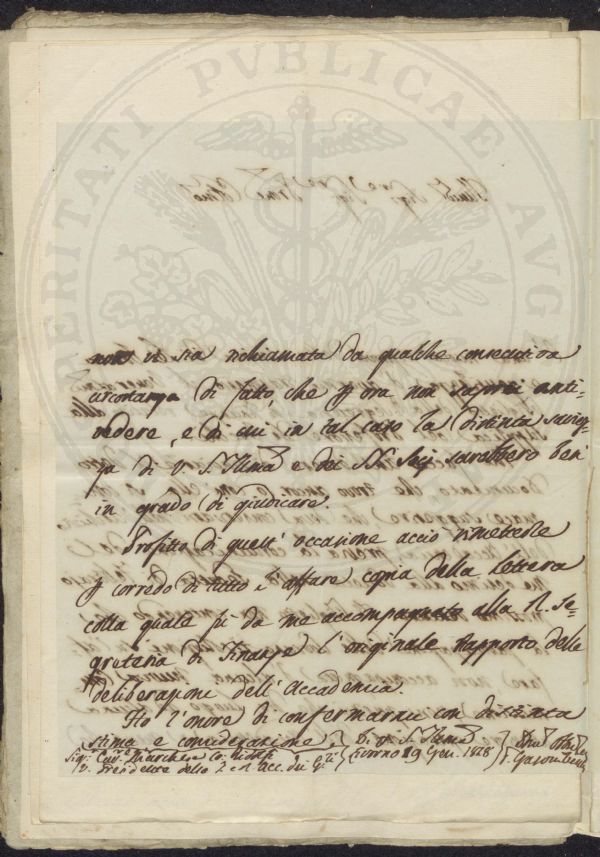 PERITATI PVBLICAE AVGE
non vi sia richiamata da qualche consecutiva
circostanza di fatto, che p ora non saprei anti-
vedere, e di cui in tal caso la distinta saviez-
za di V. S. Illma e dei SS. Suij sarebbero ben
in grado di giudicare.
Profitto di quest' occasione acciò rimetterle
p corredo di tutto l' affare copia della lettera
colla quale fù da me accompagnato alla R. Se-
greteria di Finanze l' originale Rapporto delle
deliberazioni dell' Accademia.
Ho l' onore di confermarmi con distinta
stima e considerazione.
Di V. S. Illma
Sig. Cav. Marchese Co. Ridolfi
V. Presidente della I. e R. Acc. dei G.li
Livorno 19 Gen. 1828